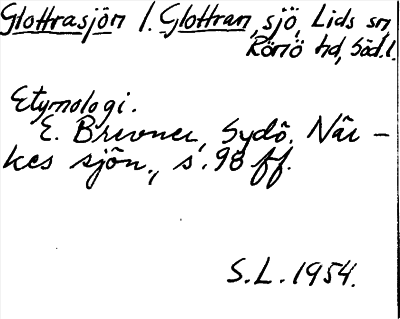 Glottrasjön l. Glottran, sjö, Lids sn,
Rönö hd, Söd.l.
Etymologi.
E. Brevner, Sydö. När-
kes sjön., s. 98 ff.
S.L. 1954.